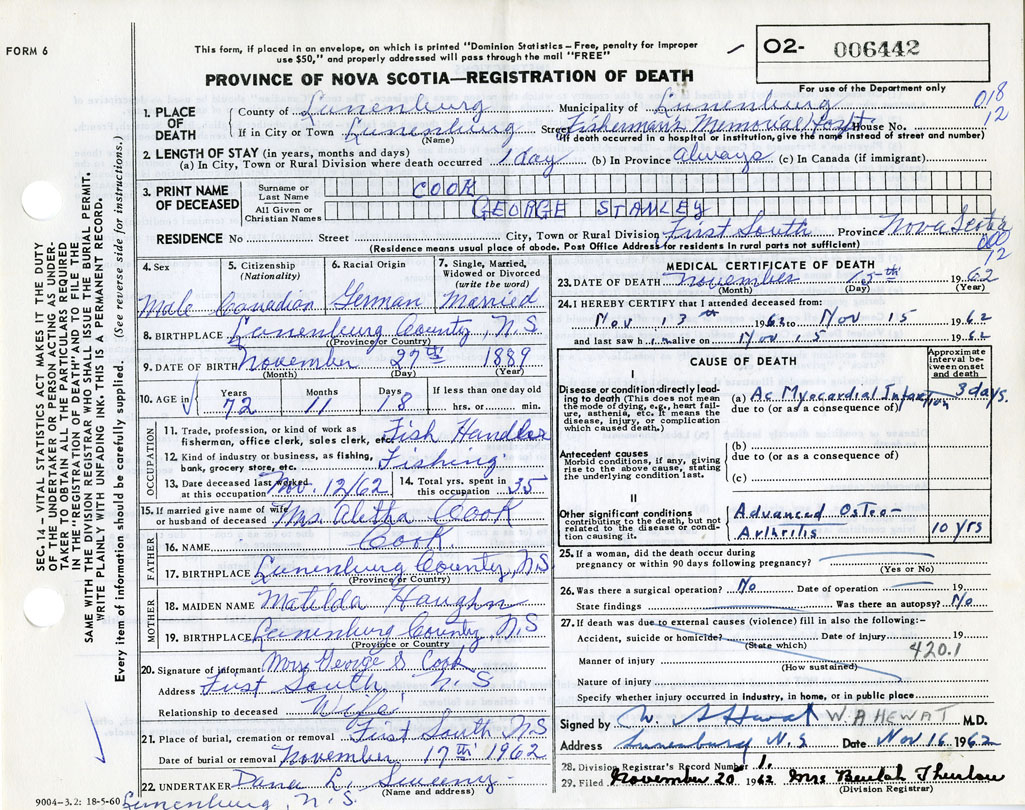 FORM 6
This form, if placed in an envelope, on which is printed "Dominion Statistics – Free, penalty for improper
use $50," and properly addressed will pass through the mail "FREE"
O2- 006442
For use of the Department only
PROVINCE OF NOVA SCOTIA—REGISTRATION OF DEATH
018
12
SEC. 14 – VITAL STATISTICS ACT MAKES IT THE DUTY
OF THE UNDERTAKER OR PERSON ACTING AS UNDER-
TAKER TO OBTAIN ALL THE PARTICULARS REQUIRED
IN THE "REGISTRATION OF DEATH" AND TO FILE THE
SAME WITH THE DIVISION REGISTRAR WHO SHALL ISSUE THE BURIAL PERMIT.
WRITE PLAINLY WITH UNFADING INK. THIS IS A PERMANENT RECORD.
Every item of information should be carefully supplied. (See reverse side for instructions.)
1. PLACE OF DEATH
County of Lunenburg Municipality of Lunenburg
If in City or Town Lunenburg Street Fisherman's Memorial Hospt. House No.
(Name) (If death occurred in a hospital or institution, give the name instead of street and number)
2. LENGTH OF STAY (in years, months and days)
(a) In City, Town or Rural Division where death occurred 1 day (b) In Province always (c) In Canada (if immigrant)
3. PRINT NAME OF DECEASED
Surname or Last Name COOK
All Given or Christian Names GEORGE STANLEY
RESIDENCE No Street City, Town or Rural Division First South Province Nova Scotia
(Residence means usual place of abode. Post Office Address for residents in rural parts not sufficient)
000
12
4. Sex Male
5. Citizenship (Nationality) Canadian
6. Racial Origin German
7. Single, Married, Widowed or Divorced (write the word) Married
8. BIRTHPLACE Lunenburg County, N.S
(Province or Country)
9. DATE OF BIRTH November 27th 1889
(Month) (Day) (Year)
10. AGE in Years 72 Months 11 Days 18 If less than one day old hrs. or min.
OCCUPATION
11. Trade, profession, or kind of work as
fisherman, office clerk, sales clerk, etc. Fish Handler
12. Kind of industry or business, as fishing,
bank, grocery store, etc. Fishing
13. Date deceased last worked
at this occupation Nov. 12/62
14. Total yrs. spent in
this occupation 35
15. If married give name of wife
or husband of deceased Mrs. Aletha Cook
FATHER
16. NAME Cook
17. BIRTHPLACE Lunenburg County, N.S
(Province or Country)
MOTHER
18. MAIDEN NAME Matilda Haughn
19. BIRTHPLACE Lunenburg County, N.S
(Province or Country)
20. Signature of informant Mrs George S. Cook
Address First South, N.S
Relationship to deceased Wife
21. Place of burial, cremation or removal First South N.S
Date of burial or removal November 17th 1962
22. UNDERTAKER Dana L. Sweeny
(Name and address)
Lunenburg, N.S.
9004-3.2: 18-5-60
MEDICAL CERTIFICATE OF DEATH
23. DATE OF DEATH November 15th 1962
(Month) (Day) (Year)
24. I HEREBY CERTIFY that I attended deceased from:
Nov 13th 1962 to Nov 15 1962
and last saw him alive on Nov 15 1962
CAUSE OF DEATH
Approximate interval between onset and death
I
Disease or condition directly leading
to death (This does not mean
the mode of dying, e.g., heart failure,
asthenia, etc. It means the
disease, injury, or complication
which caused death.)
(a) Ac Myocardial Infarction 3 days.
due to (or as a consequence of)
Antecedent causes
Morbid conditions, if any, giving
rise to the above cause, stating
the underlying condition last.
(b)
due to (or as a consequence of)
(c)
II
Other significant conditions
contributing to the death, but not
related to the disease or condition
causing it.
Advanced Osteo-
Arthritis 10 yrs
25. If a woman, did the death occur during
pregnancy or within 90 days following pregnancy?
(Yes or No)
26. Was there a surgical operation? No Date of operation 19
State findings Was there an autopsy? No
27. If death was due to external causes (violence) fill in also the following:–
Accident, suicide or homicide? Date of injury 19
(State which) 420.1
Manner of injury
(How sustained)
Nature of injury
Specify whether injury occurred in industry, in home, or in public place
Signed by W. A Hewat W. A HEWAT M.D.
Address Lunenburg N.S Date Nov 16 1962
28. Division Registrar's Record Number 1.
29. Filed November 20 1962 Mrs Beulah Thurlow
(Division Registrar)